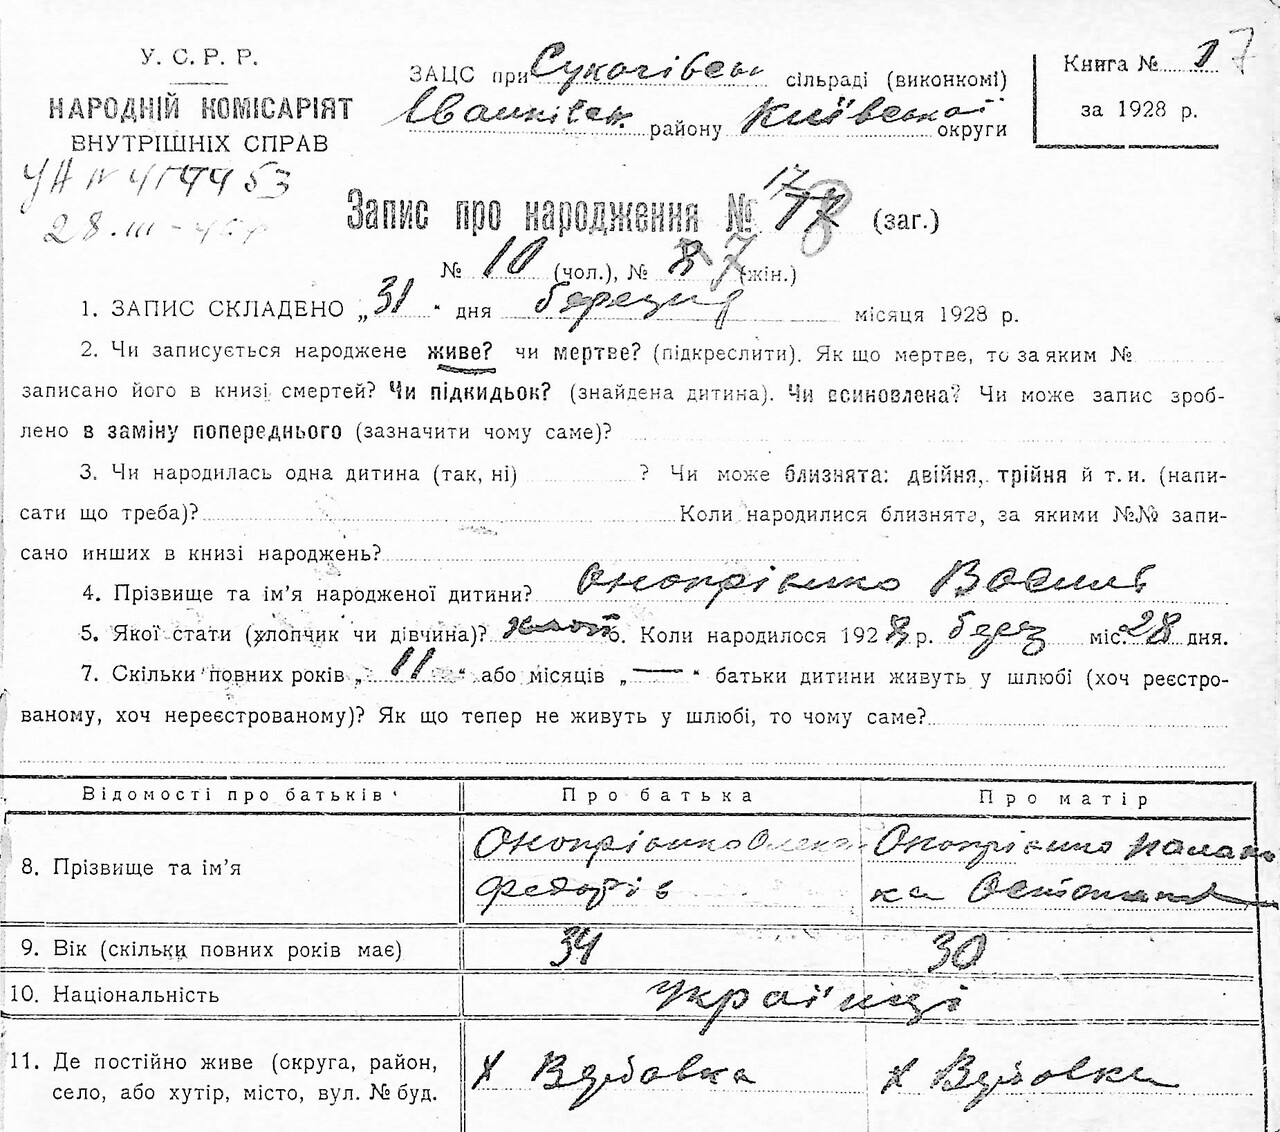 У. С. Р. Р.
НАРОДНІЙ КОМІСАРІЯТ
ВНУТРІШНІХ СПРАВ
УА № 417453
28.III-
ЗАЦС при Сукачівськ сільраді (виконкомі)
Іванківськ району Київської округи
Книга № 1 7
за 1928 р.
Запис про народження № 17 8 (заг.)
№ 10 (чол.), № 7 (жін.)
1. ЗАПИС СКЛАДЕНО „ 31 " дня березня місяця 1928 р.
2. Чи записується народжене живе? чи мертве? (підкреслити). Як що мертве, то за яким №
записано його в книзі смертей? Чи підкидьок? (знайдена дитина). Чи всиновлена? Чи може запис зроб-
лено в заміну попереднього (зазначити чому саме)?
3. Чи народилась одна дитина (так, ні) ? Чи може близнята: двійня, трійня й т. и. (напи-
сати що треба)? Коли народилися близнята, за якими №№ запи-
сано инших в книзі народжень?
4. Прізвище та ім'я народженої дитини? Онопрієнко Василь
5. Якої стати (хлопчик чи дівчина)? хлоп. Коли народилося 1928 р. берез міс. 28 дня.
7. Скільки повних років „ 11 " або місяців „ — " батьки дитини живуть у шлюбі (хоч реєстро-
ваному, хоч нереєстрованому)? Як що тепер не живуть у шлюбі, то чому саме?
Відомості про батьків Про батька Про матір
8. Прізвище та ім'я Онопрієнко Олекса Федорів Онопрієнко Палажка
9. Вік (скільки повних років має) 34 30
10. Національність Українці
11. Де постійно живе (округа, район,
село, або хутір, місто, вул. № буд. х Вдовка х Вдовка